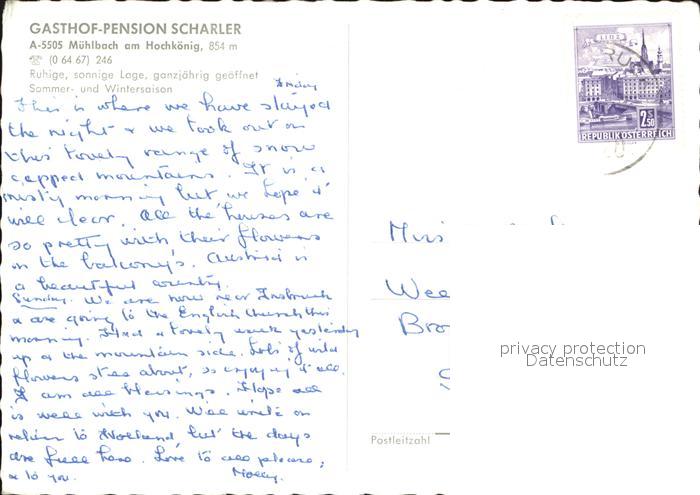 GASTHOF-PENSION SCHARLER
A-5505 Mühlbach am Hochkönig, 854 m
☏ (0 64 67) 246
Ruhige, sonnige Lage, ganzjährig geöffnet
Sommer- und Wintersaison
Friday
This is where we have stayed
the night & we look out on
this lovely range of snow
capped mountains. It is a
misty morning but we hope it
will clear. All the houses are
so pretty with their flowers
on the balcony's. Austria is
a beautiful country.
Sunday. We are now near Insbruck
& are going to the English church this
morning. Had a lovely walk yesterday
up on the mountain side. Lots of wild
flowers still about, so enjoying it all.
I am all blessings. Hope all
is well with you. Will write on
return to Holland, but the days
are full here. Love to all please,
& to you. Molly.
LINZ
2 S 50
REPUBLIK ÖSTERREICH
Miss
Wee
Bro
S
privacy protection
Datenschutz
Postleitzahl